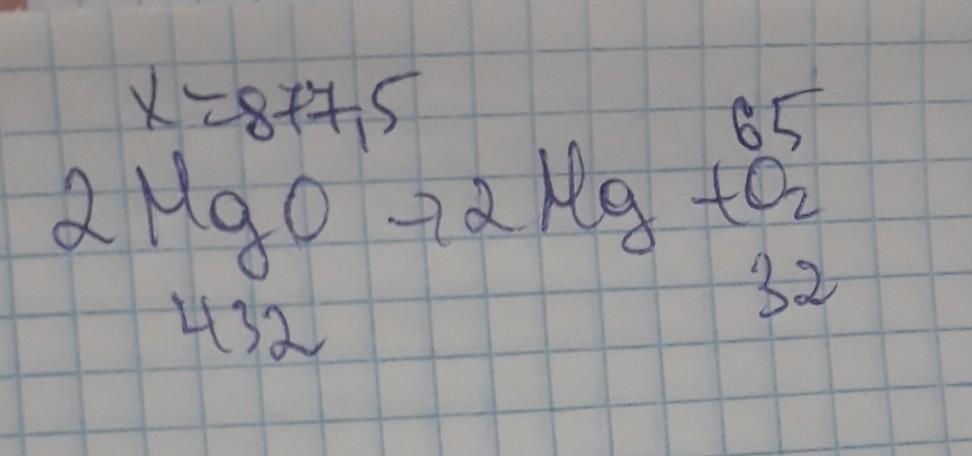 x = 877,5 65
2 MgO → 2 Mg + O₂
432 32